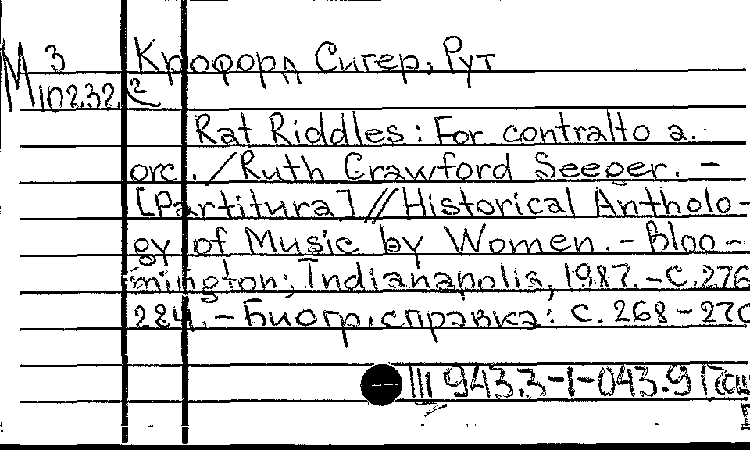 М 3 Крофорд Сигер, Рут
10232 2
Rat Riddles: For contralto a.
orc. / Ruth Crawford Seeger. -
[Partitura] // Historical Antholo-
gy of Music by Women. - Bloo-
mington; Indianapolis, 1987. - С. 276
284. - Биогр. справка: с. 268-270
III 943.3-1-043.9